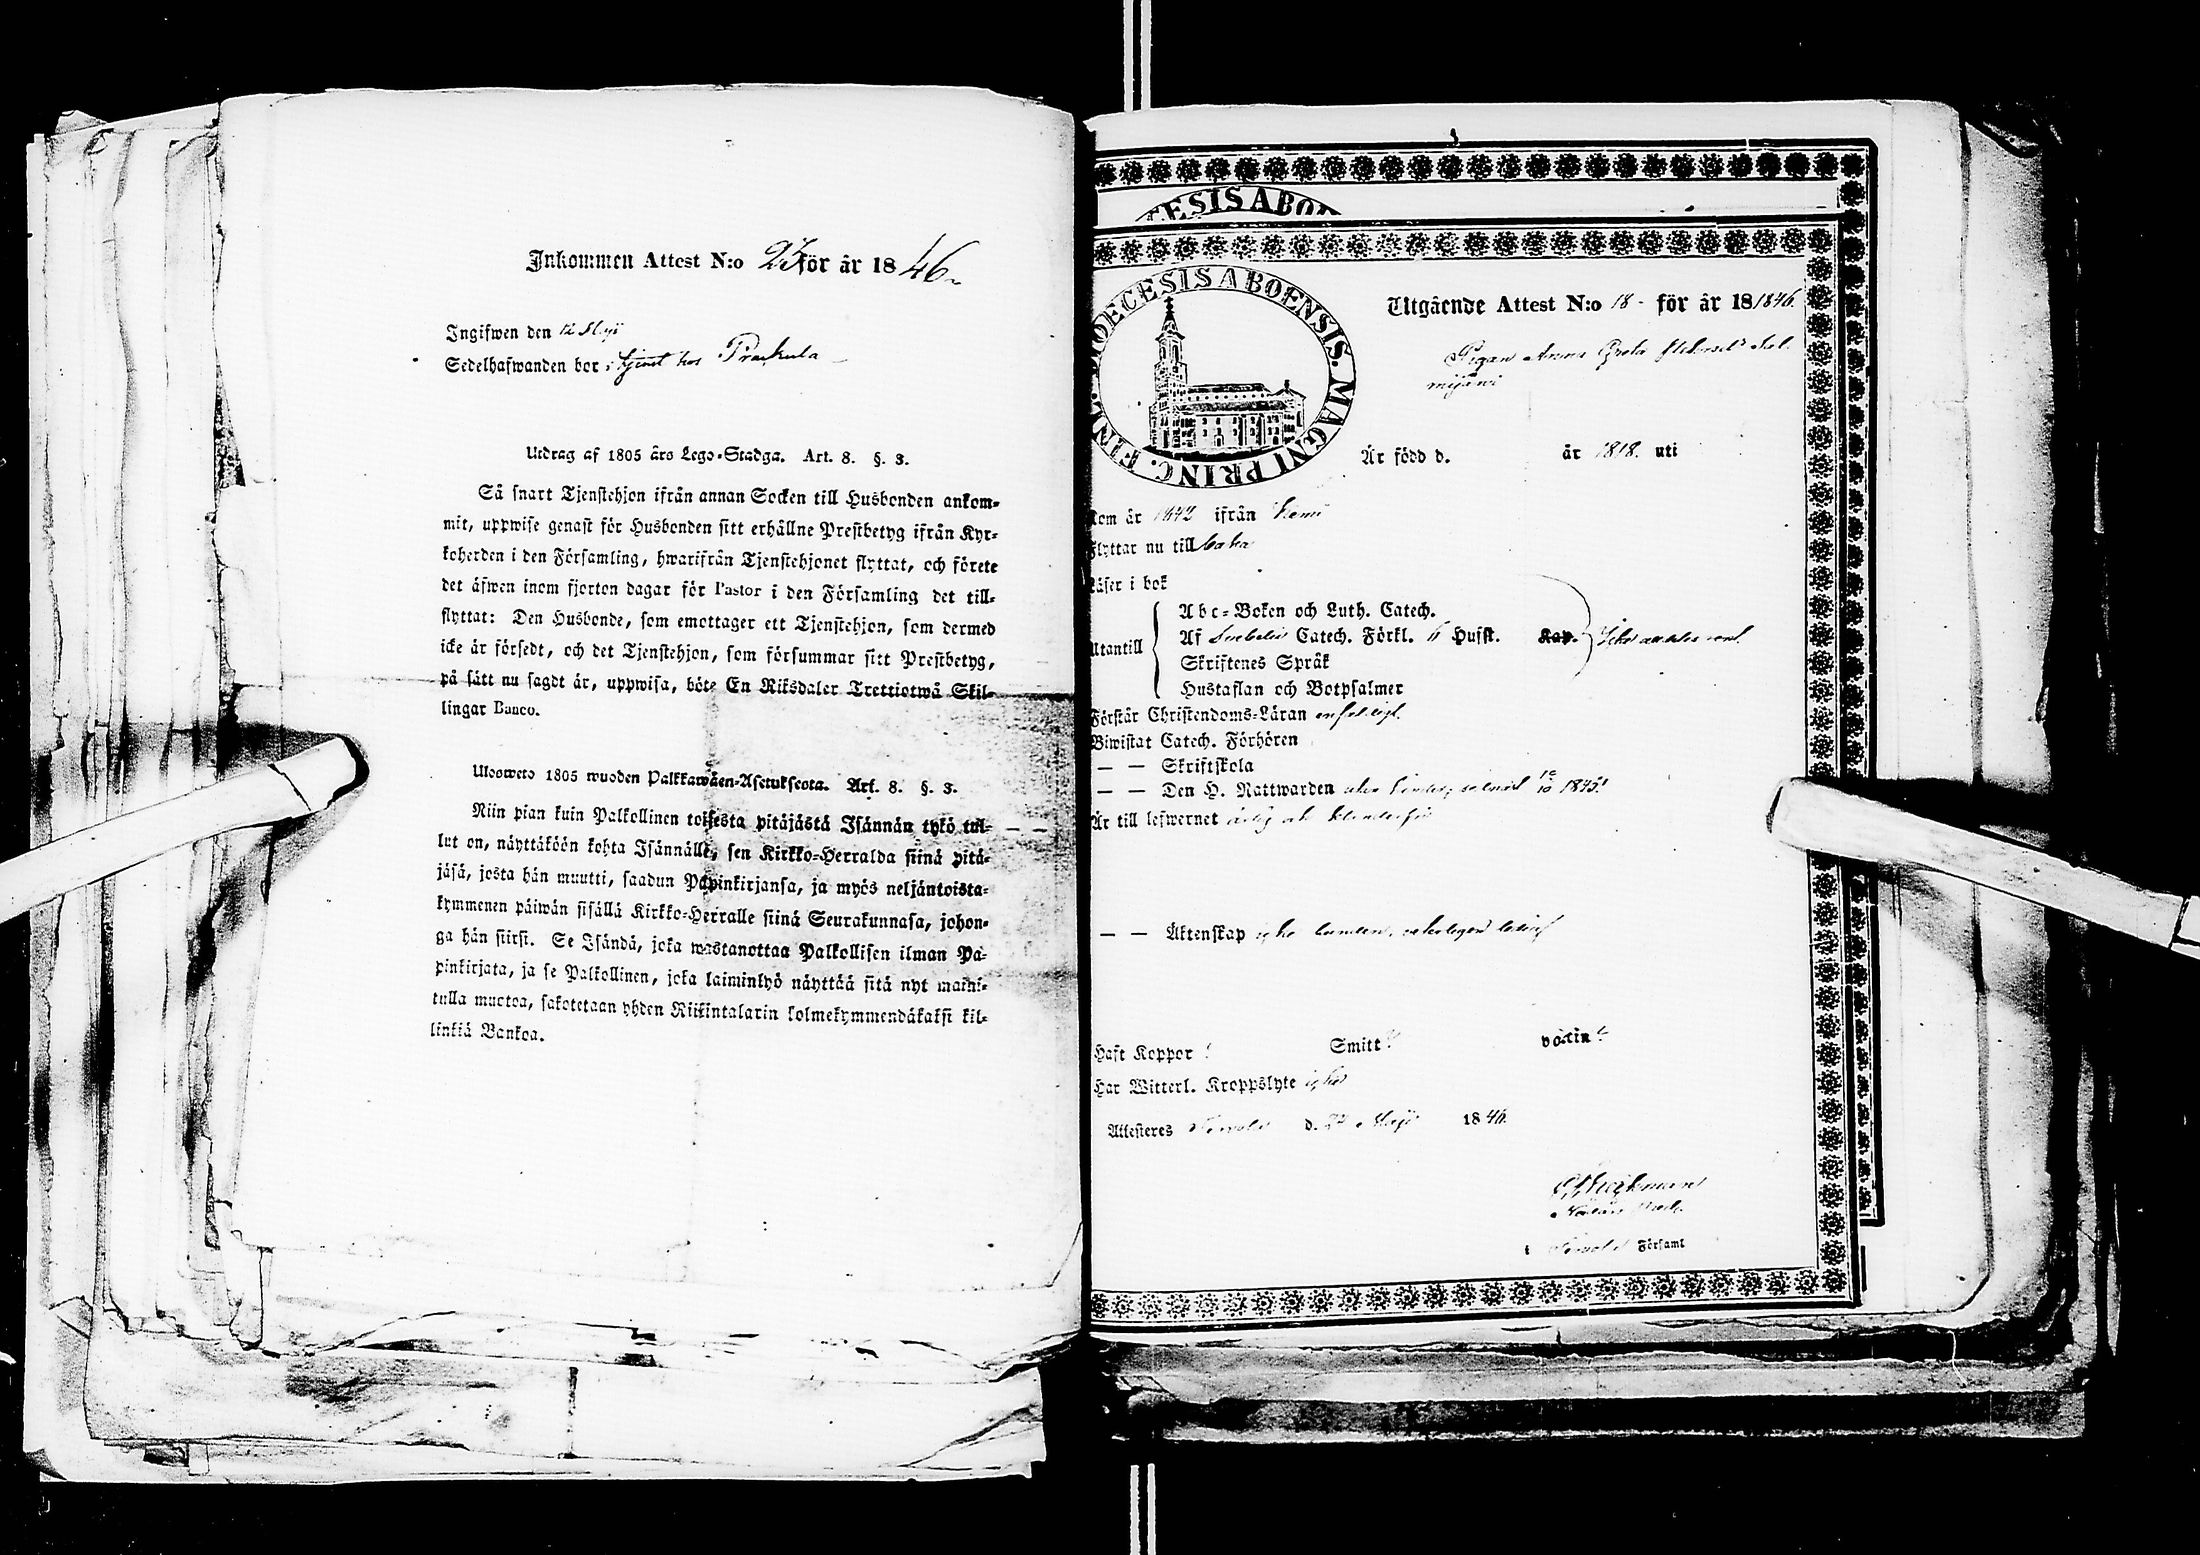 Inkommen Attest N:o 23 för år 1846
Ingifwen den 12
Sedelhafwanden bor i tjenst hos
Utdrag af 1805 års Lego-Stadga. Art. 8. §. 3.
Så snart Tjenstehjon ifrån annan Socken till Husbonden ankom-
mit, uppwise genast för Husbonden sitt erhållne Prestbetyg ifrån Kyr-
koherden i den Församling, hwarifrån Tjenstehjonet flyttat, och förete
det äfwen inom fjorton dagar för Pastor i den Församling det till-
flyttat: Den Husbonde, som emottager ett Tjenstehjon, som dermed
icke är försedt, och det Tjenstehjon, som försummar sitt Prestbetyg,
på sätt nu sagdt är, uppwisa, böte En Riksdaler Trettiotwå Skil-
lingar Banco.
Ulosweto 1805 wuoden Palkkawäen-Asetuksesta. Art. 8. §. 3.
Niin pian kuin Palkollinen toisesta pitäjästä Isännän tykö tul-
lut on, näyttäköön kohta Isännälle, sen Kirkko-Herralda siinä pitä-
jäsä, josta hän muutti, saadun Papinkirjansa, ja myös neljäntoista-
kymmenen päiwän sisällä Kirkko-Herralle siinä Seurakunnasa, johon-
ga hän siirsi. Se Isändä, joka wastanottaa Palkollisen ilman Pa-
pinkirjata, ja se Palkollinen, joka laiminlyö näyttää sitä nyt maini-
tulla muotoa, sakotetaan yhden Riikintalarin kolmekymmendäkaksi kil-
linkiä Bankoa.
CESIS ABOE
DIOECESIS ABOENSIS. MAGNI PRINC. FINL.
Utgående Attest N:o 18 - för år 181846.
Pigan Anna Greta
Är född d. år 1818. uti
kom år 1842 ifrån Kemi
flyttar nu till
Läser i bok
Utantill
Abc-Boken och Luth. Catech.
Af Catech. Förkl. 6 Hufst. Kap.
Skriftenes Språk
Hustaflan och Botpsalmer
Förstår Christendoms-Läran enfaldigt.
Biwistat Catech. Förhören
— — Skriftskola
— — Den H. Nattwarden 1845
Är till lefwernet ärlig och
— — Äktenskap
Haft Koppor Smitt vaccin
Har Witterl. Kroppslyte
Attesteres d. Maji 1846.
i Församl